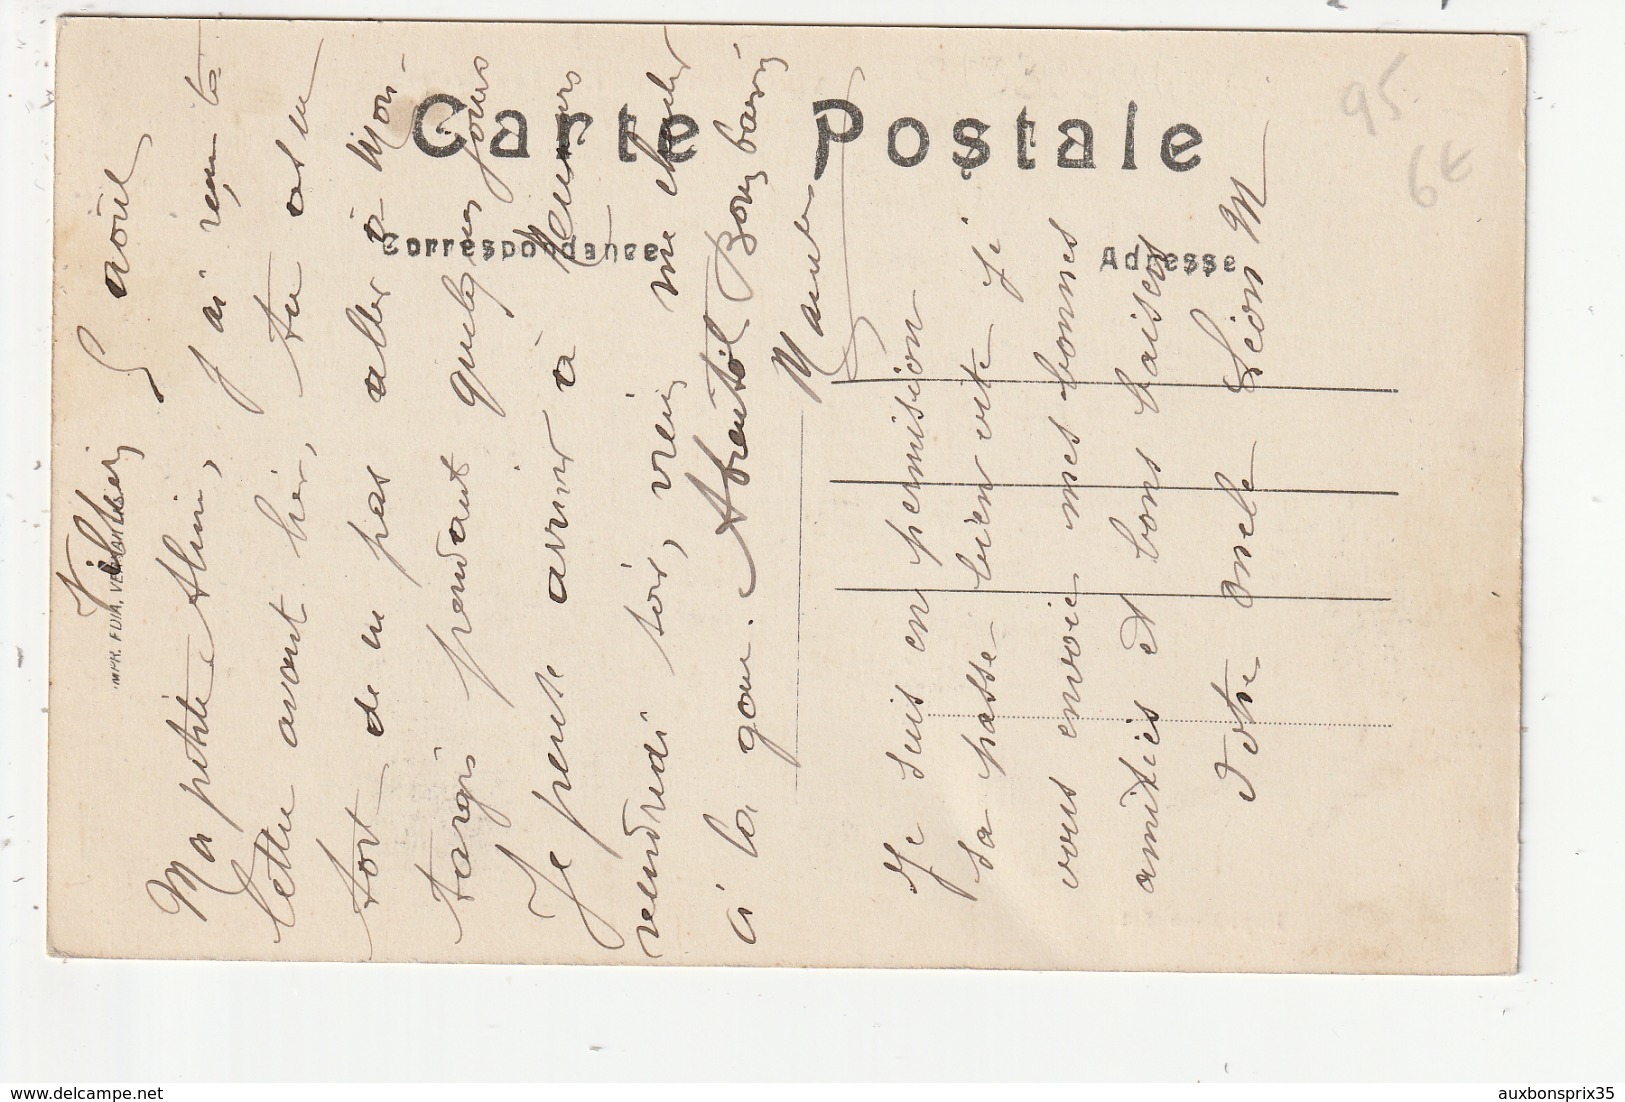 Carte Postale
Correspondance
Adresse
95
6€
IMPR. EDIA, VERSAILLES
5 août
Ma petite Aline, j'ai reçu ta
lettre avant hier, tu as eu
tort de ne pas aller à Mon-
targis pendant quelques jours
Je pense arriver à Nemours
vendredi soir, viens me chercher
à la gare. A bientôt Bons baisers
Je suis en permission
sa passe bien vite Je
vous envoie mes bonnes
amitiés et bons baisers
Votre Oncle Léon M
auxbonsprix35